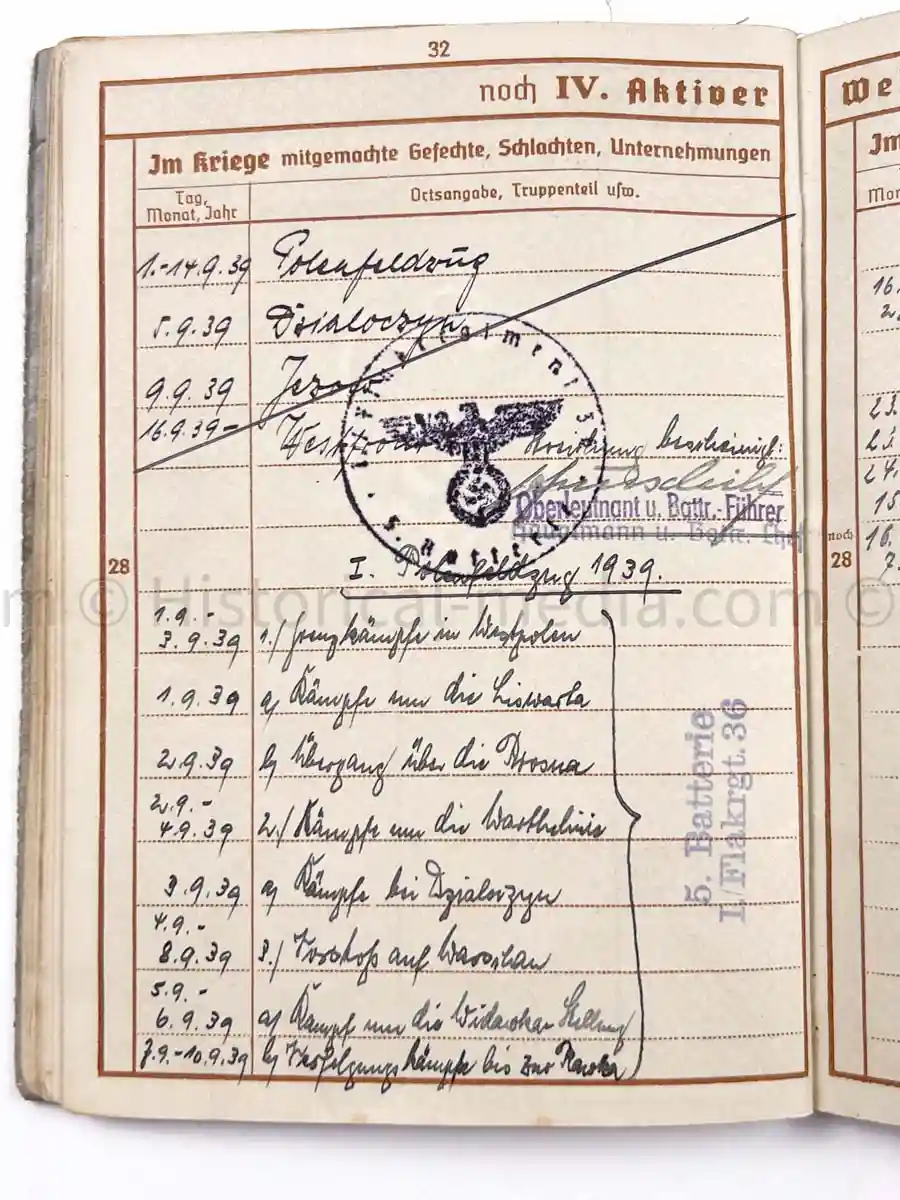 32
noch IV. Aktiver
We
Im Kriege mitgemachte Gefechte, Schlachten, Unternehmungen
Im
Tag, Monat, Jahr
Ortsangabe, Truppenteil usw.
Mon
1.-14.9.39 Polenfeldzug
5.9.39 Dzialoczyn
9.9.39
16.9.39- Westfront
Streichung bescheinigt:
Oberleutnant u. Battr.-Führer
Hauptmann u. Battr. Chef
28
noch 28
I. Polenfeldzug 1939.
m © Historical-media.com ©
1.9.-3.9.39 1./ Grenzkämpfe in Westpolen
1.9.39 a) Kämpfe um die Liswarta
2.9.39 b) Übergang über die Prosna
2.9.-4.9.39 2./ Kämpfe um die Warthelinie
3.9.39 a) Kämpfe bei Dzialoczyn
4.9.-8.9.39 3./ Vorstoß auf Warschau
5.9.-6.9.39 a) Kampf um die Widawka Stellung
7.9.-10.9.39 b) Verfolgungskämpfe bis zur Rawka
5. Batterie
I./Flakrgt. 36